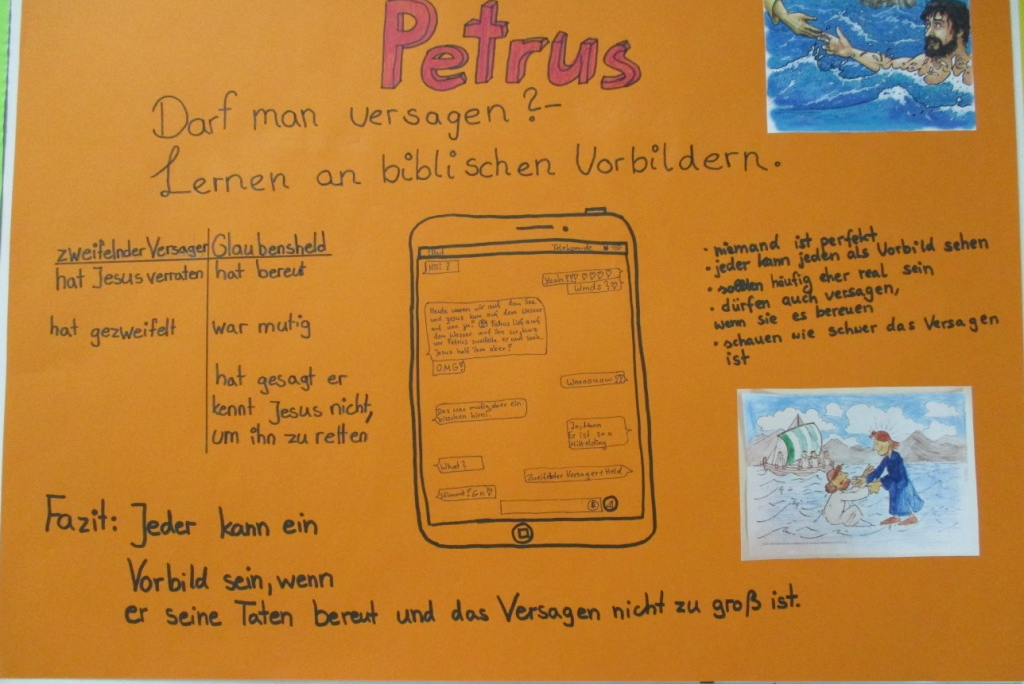 Petrus
Darf man versagen?-
Lernen an biblischen Vorbildern.
zweifelnder Versager Glaubensheld
hat Jesus verraten hat bereut
hat gezweifelt war mutig
hat gesagt er
kennt Jesus nicht,
um ihn zu retten
Yeah!!!
Wmds?
Heute waren wir auf dem See
und Jesus kam auf dem Wasser
auf uns zu! Petrus lief auf
dem Wasser auf ihn zu,
Petrus zweifelte er und sank.
Jesus half ihm aber!
OMG!
Waaaauuw!!!
Das war mutig, aber ein
bisschen
Er ist so n
Mittelding
What?
Zweifelnder Versager + Held
Stimmt!
• niemand ist perfekt
• jeder kann jeden als Vorbild sehen
• sollten häufig eher real sein
• dürfen auch versagen,
wenn sie es bereuen
• schauen wie schwer das Versagen
ist
Fazit: Jeder kann ein
Vorbild sein, wenn
er seine Taten bereut und das Versagen nicht zu groß ist.